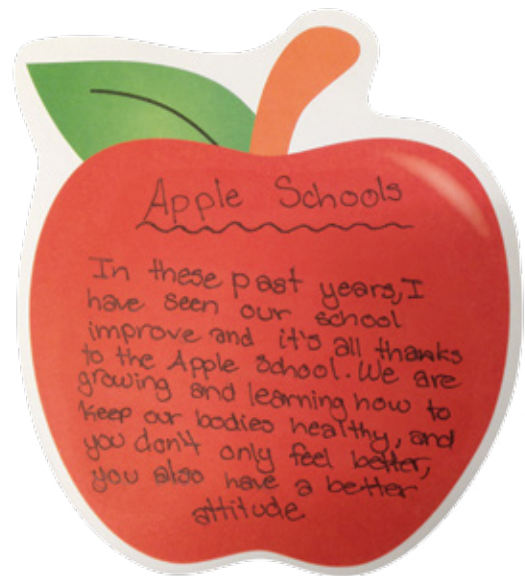 Apple Schools
In these past years, I
have seen our school
improve and it's all thanks
to the Apple School. We are
growing and learning how to
keep our bodies healthy, and
you don't only feel better,
you also have a better
attitude